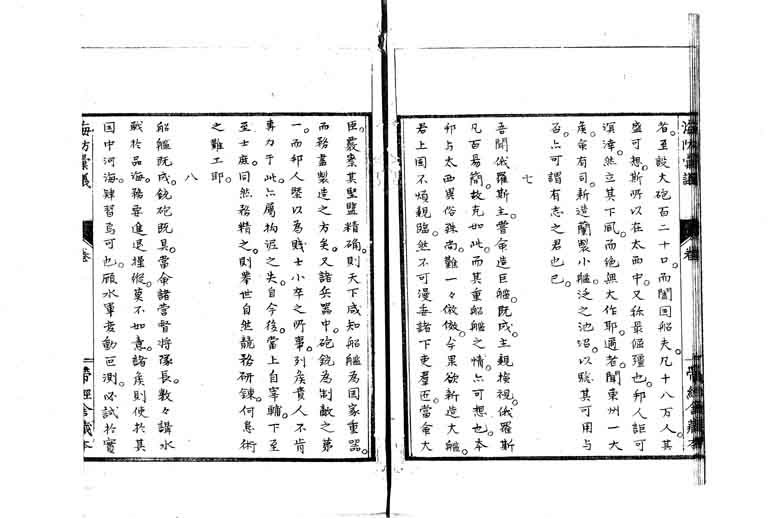 者至設大砲百二十口而闔国船夫凡十八万人其
盛可想斯所以在太西中又称最偪彊也邦人詎可
溟涬然立其下風而絶無大作耶適者聞東州一大
侯命有司新造蘭製小艦泛之池沼以驗其可用与
否亦可謂有志之君也已
七
吾聞俄羅斯主嘗命造巨艦既成主親検視俄羅斯
凡百易簡故克如此而其重船艦之情亦可想也本
邦与太西異俗殊尚難一々倣傚今果欲新造大艦
君上固不煩親臨然不可漫委諸下吏羣匠當命大
臣嚴察其堅監精確則天下咸知船艦為国家重器
而務盡製造之方矣又諸兵器中砲銃為制敵之第
一而邦人槩以為賎士小卒之所事列侯貴人不肯
專力于此亦属拘泥之失自今後當上自宰輔下至
至士庶同然務精之則挙世自然競務研錬何患術
之難工耶
八
船艦既成銃砲既具當命諸営督将隊長数々講水
戦於品海務要進退擒縦莫不如意諸侯則使於其
国中河海肄習焉可也顧水軍者動叵測必試於實
海防彙議
卷
帶經舎蔵本